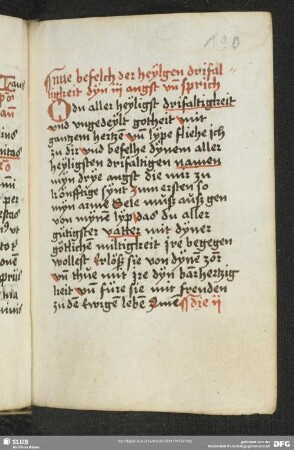 190
¶ Nue befelch der heylgen drifal-
tigkeit dyn iij angst vn̄ sprich
O du aller heyligst drifaltigkeit
vnd vngedeylt gotheit mit
gantzem hertzē vn̄ lype fliehe ich
zu dir vnd befelhe dynem aller
heyligsten drifaltigen namen
myn drye angst die mir zu
kōnfftige synt zum ersten so
myn arme sele muß auß gen
von mynē lyp das du aller
gütigster vatter mit dyner
götlichē miltigkeit jre begegen
wollest Erlöß sie von dynē zorn
vn̄ thue mit jre dyn barhertzig
keit vn̄ füre sie mit freuden
zu dē ewigē lebē Amē ¶ die ij
SLUB
DFG